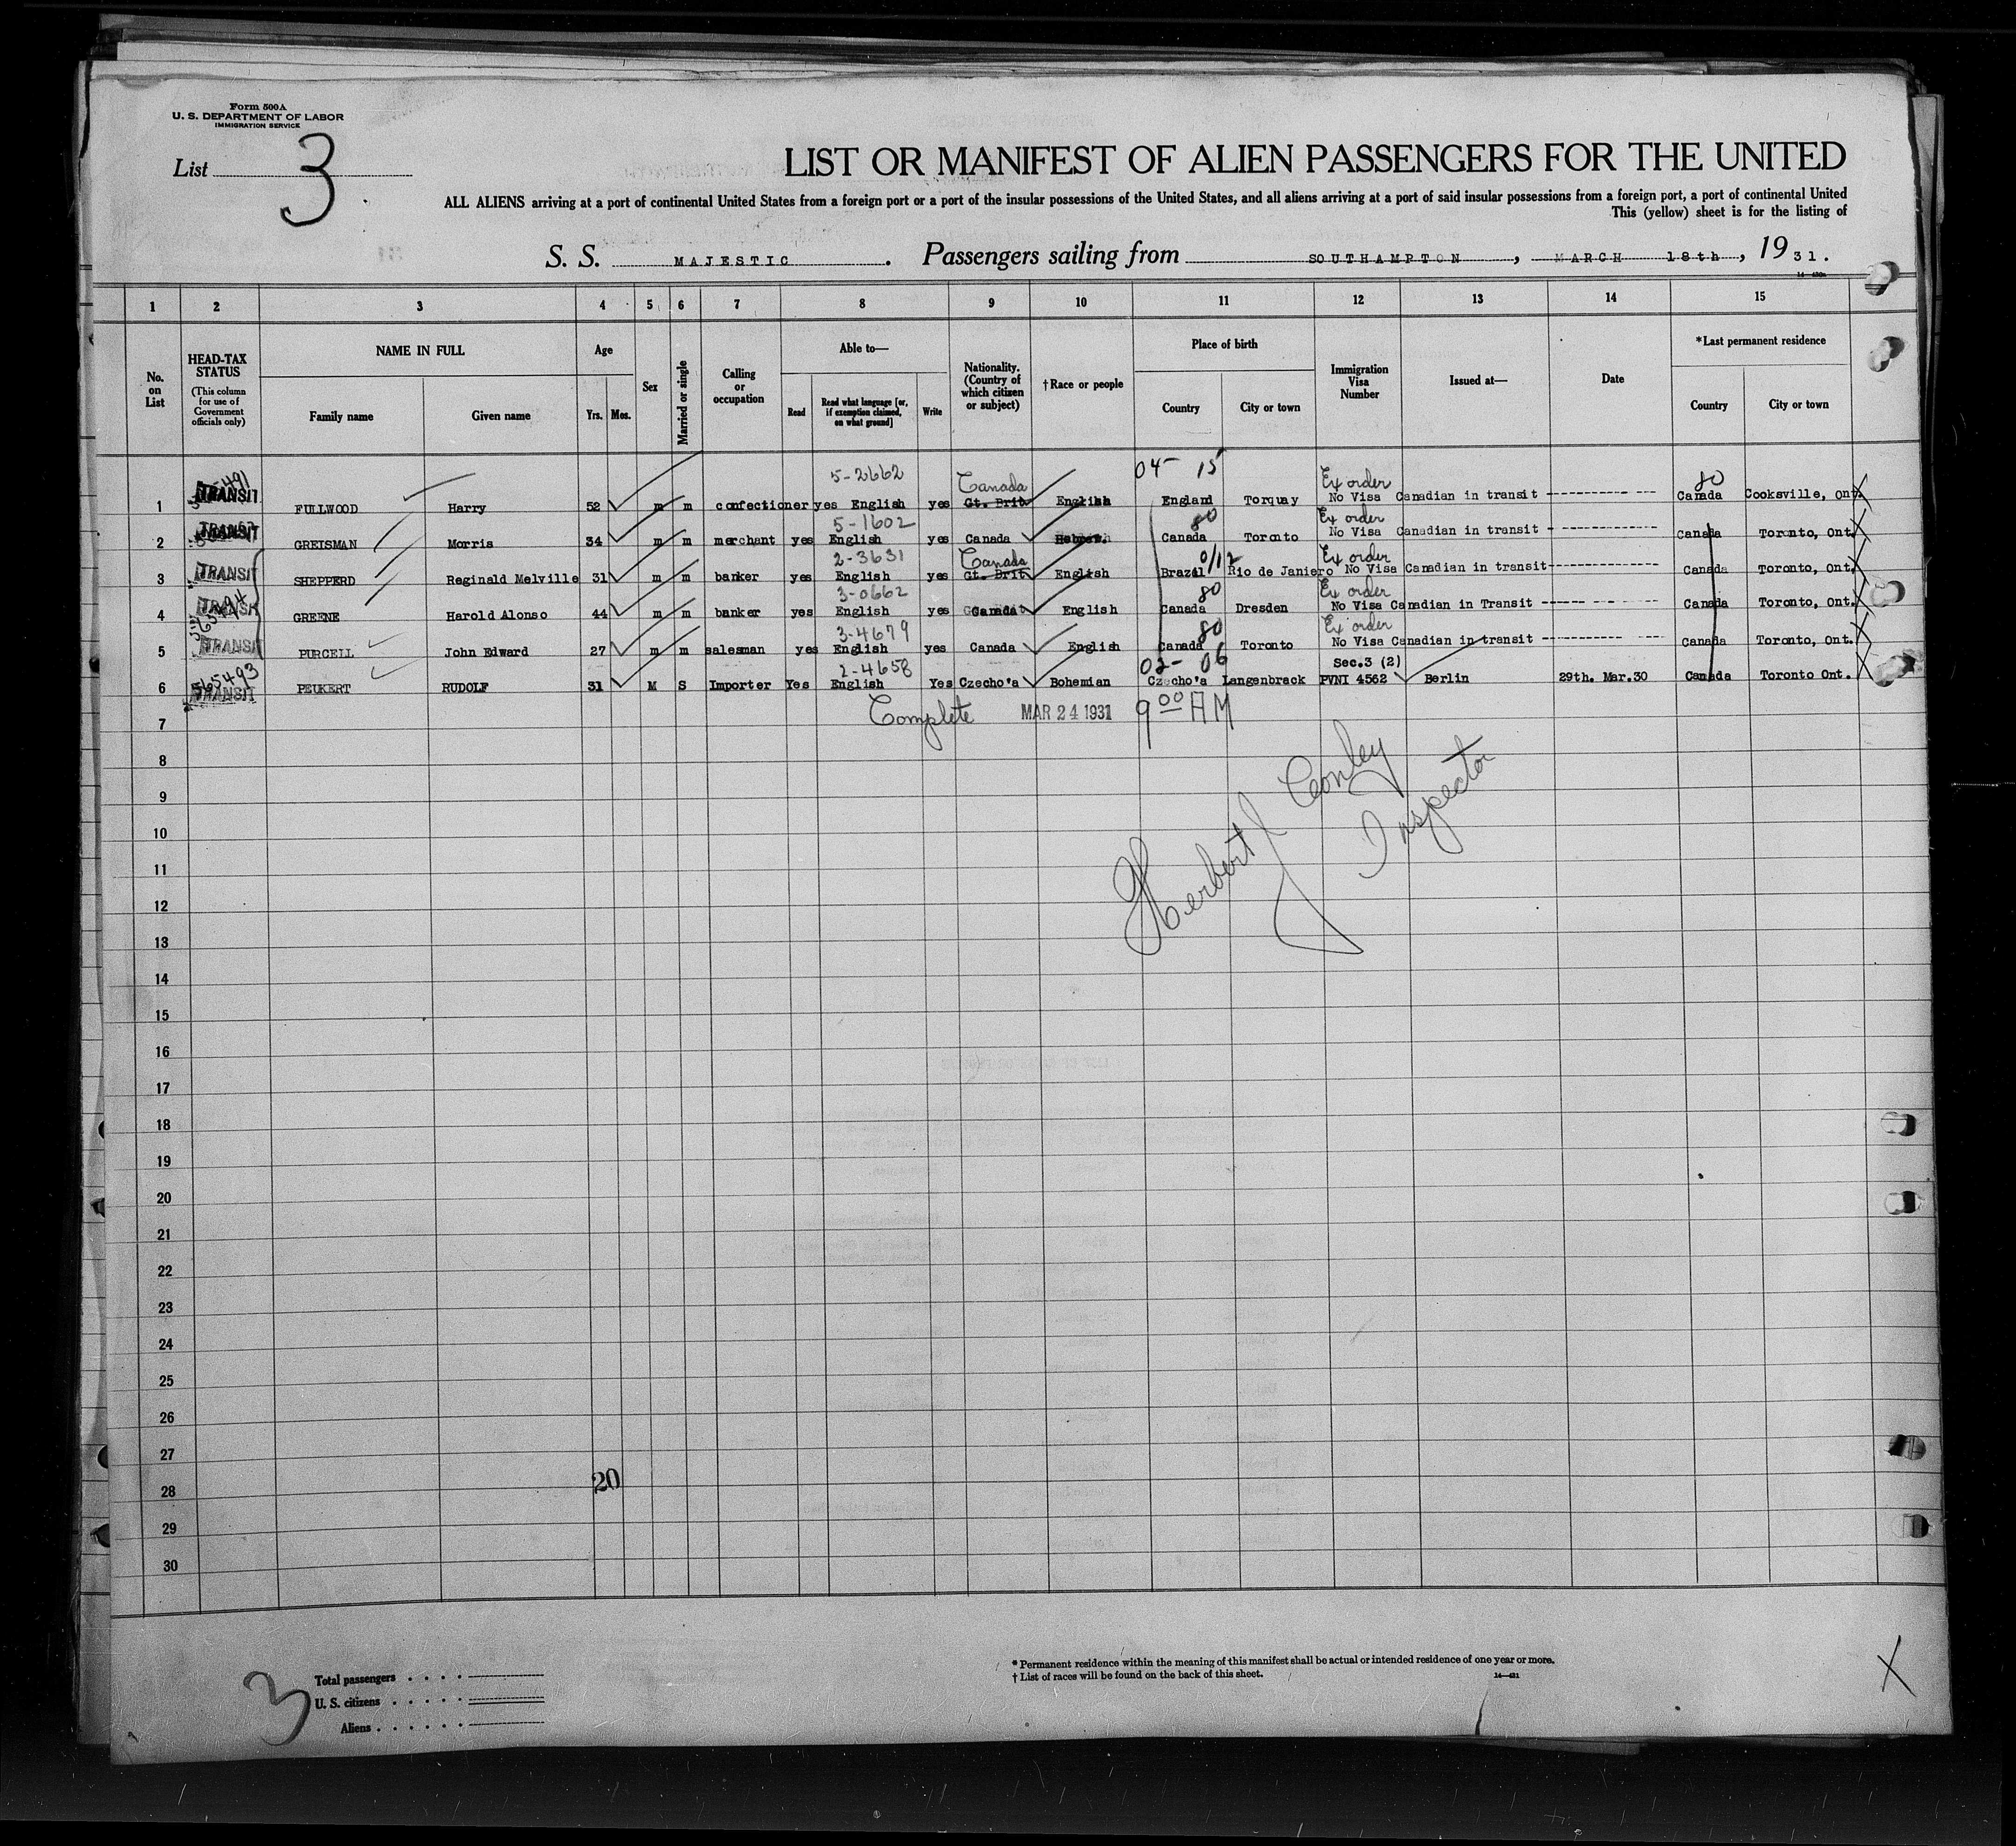 Form 500A
U. S. DEPARTMENT OF LABOR
IMMIGRATION SERVICE
List 3
LIST OR MANIFEST OF ALIEN PASSENGERS FOR THE UNITED
ALL ALIENS arriving at a port of continental United States from a foreign port or a port of the insular possessions of the United States, and all aliens arriving at a port of said insular possessions from a foreign port, a port of continental United
This (yellow) sheet is for the listing of
S. S. MAJESTIC. Passengers sailing from SOUTHAMPTON, MARCH 18th, 1931.
1 2 3 4 5 6 7 8 9 10 11 12 13 14 15
No. on List
HEAD-TAX STATUS (This column for use of Government officials only)
NAME IN FULL
Family name
Given name
Age
Yrs.
Mos.
Sex
Married or single
Calling or occupation
Able to—
Read
Read what language [or, if exemption claimed, on what ground]
Write
Nationality. (Country of which citizen or subject)
† Race or people
Place of birth
Country
City or town
Immigration Visa Number
Issued at—
Date
*Last permanent residence
Country
City or town
5-2662 Canada 04- 15 Ex order 80
1 TRANSIT FULLWOOD Harry 52 m m confectioner yes English yes Gt. Brit English England Torquay No Visa Canadian in transit Canada Cooksville, Ont.
5-1602 80 Ex order
2 TRANSIT GREISMAN Morris 34 m m merchant yes English yes Canada Hebrew. Canada Toronto No Visa Canadian in transit Canada Toronto, Ont.
2-3631 Canada 0/12 Ex order
3 TRANSIT SHEPPERD Reginald Melville 31 m m banker yes English yes Gt. Brit English Brazil Rio de Janiero No Visa Canadian in transit Canada Toronto, Ont.
3-0662 80 Ex order
4 TRANSIT GREENE Harold Alonso 44 m m banker yes English yes Canada English Canada Dresden No Visa Canadian in Transit Canada Toronto, Ont.
3-4679 80 Ex order
5 TRANSIT PURCELL John Edward 27 m m salesman yes English yes Canada English Canada Toronto No Visa Canadian in transit Canada Toronto, Ont.
565493 2-4658 02- 06 Sec.3 (2)
6 TRANSIT PEUKERT RUDOLF 31 M S Importer Yes English Yes Czecho'a Bohemian Czecho'a Langenbrack PVNI 4562 Berlin 29th. Mar.30 Canada Toronto Ont.
7 Complete MAR 24 1931 9 00 AM
8
9
10
Herbert J Conley
Inspector
11
12
13
14
15
16
17
18
19
20
21
22
23
24
25
26
27
20
28
29
30
3
Total passengers
U. S. citizens
Aliens
* Permanent residence within the meaning of this manifest shall be actual or intended residence of one year or more.
† List of races will be found on the back of this sheet.
14—431